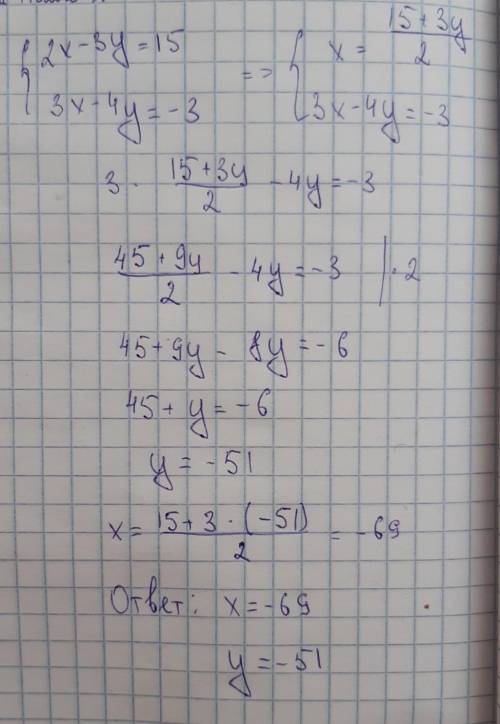 { 2x-3y=15 => { x= (15+3y)/2
3x-4y=-3 3x-4y=-3
3 · (15+3y)/2 -4y=-3
(45+9y)/2 -4y=-3 | ·2
45+9y-8y=-6
45+y=-6
y=-51
x= (15+3·(-51))/2 = -69
Ответ: x=-69
y=-51